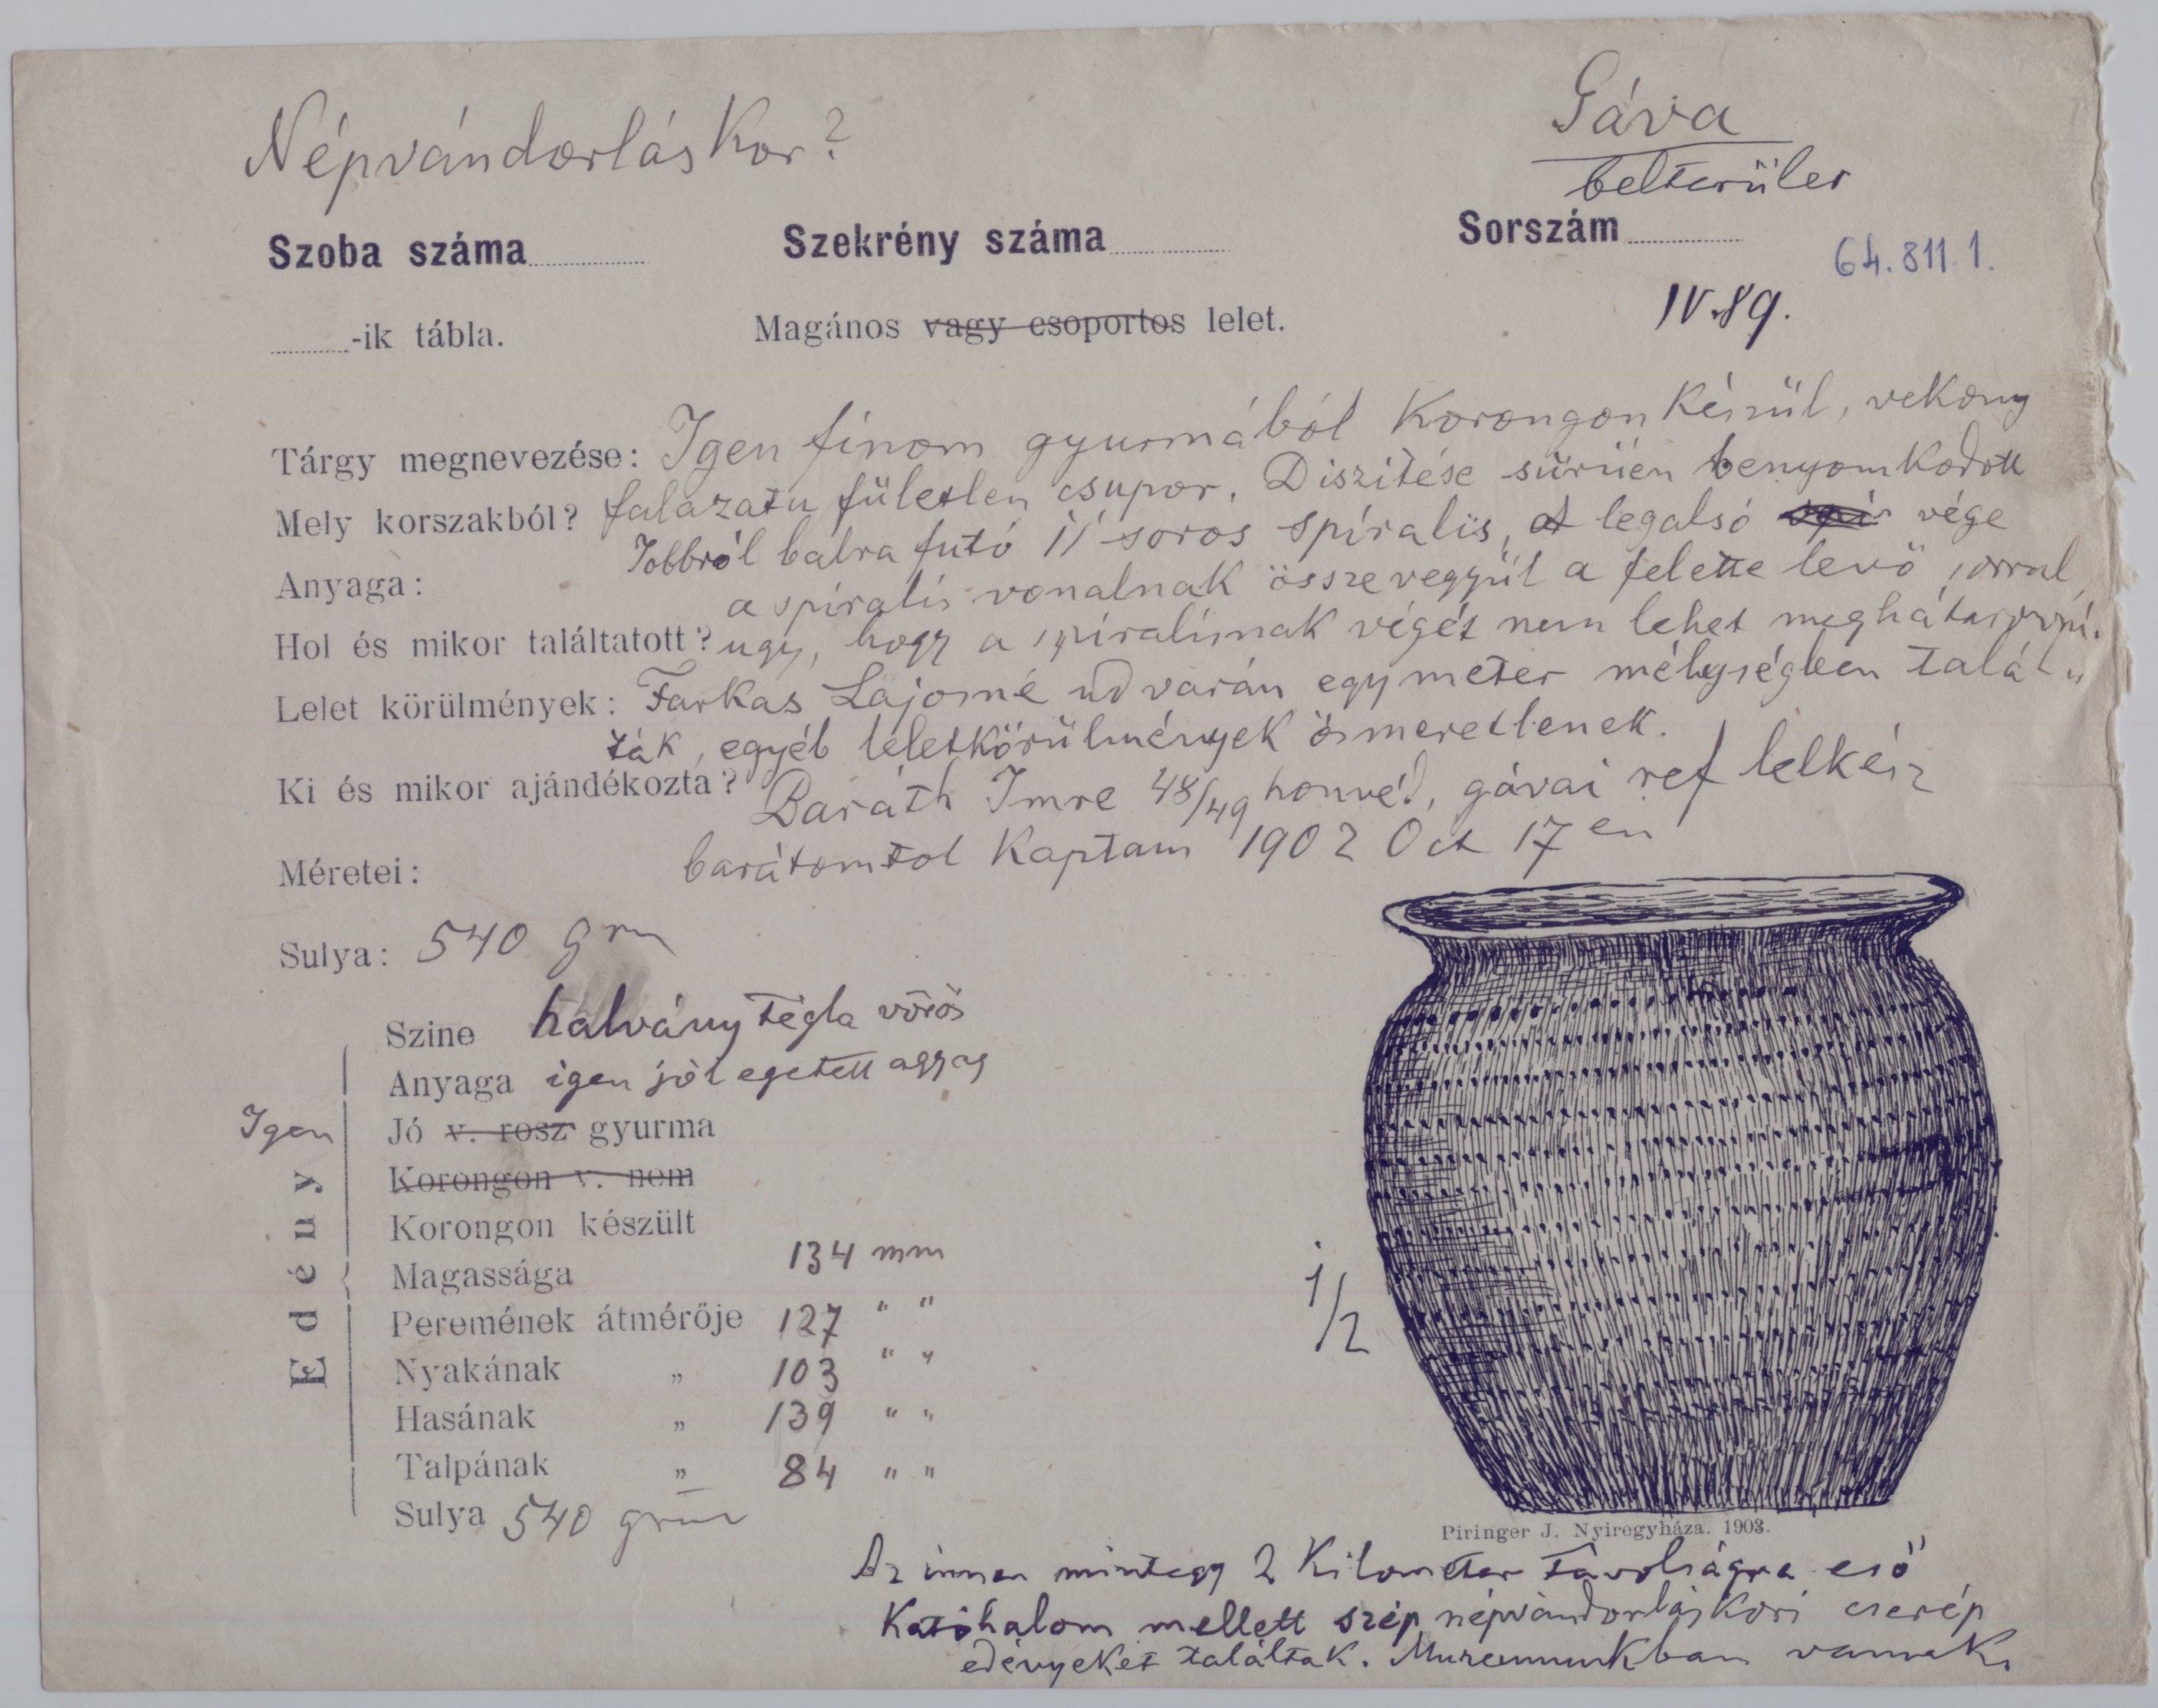 Népvándorláskor?
Gáva
belterület
Szoba száma
Szekrény száma
Sorszám
64.811.1.
-ik tábla.
Magános vagy csoportos lelet.
IV.89.
Tárgy megnevezése: Igen finom gyurmából Korongon Készül, vekony
Mely korszakból? falazatu fületlen csupor. Diszitése sürüen benyomkodott
Jobbról balra futó 11 soros spirális, A legalsó vége
Anyaga:
a spirális vonalnak összevegyül a felette levö sorral
Hol és mikor találtatott? ugy, hogy a spirálisnak végét nem lehet meghatározni.
Lelet körülmények: Farkas Lajosné udvarán egy meter mélységben talál-
ták, egyéb leletkörülmények ösmeretlenek.
Ki és mikor ajándékozta? Baráth Imre 48/49 honvéd, gávai ref lelkész
barátomtol Kaptam 1902 Oct 17 en
Méretei:
Sulya: 540 grm
Szine halvány tégla vörös
Anyaga igen jól egetett agyag
Igen Jó v. rosz gyurma
Korongon v. nem
Korongon készült
Edény
Magassága 134 mm
Peremének átmérője 127 " "
Nyakának „ 103 " "
Hasának „ 139 " "
Talpának „ 84 " "
Sulya 540 grm
1/2
Piringer J. Nyiregyháza. 1903.
Az innen mintegy 2 Kilometer távolságra eső
Katóhalom mellett szép népvándorláskori cserép
edényeket találtak. Muzeumunkban vannak.